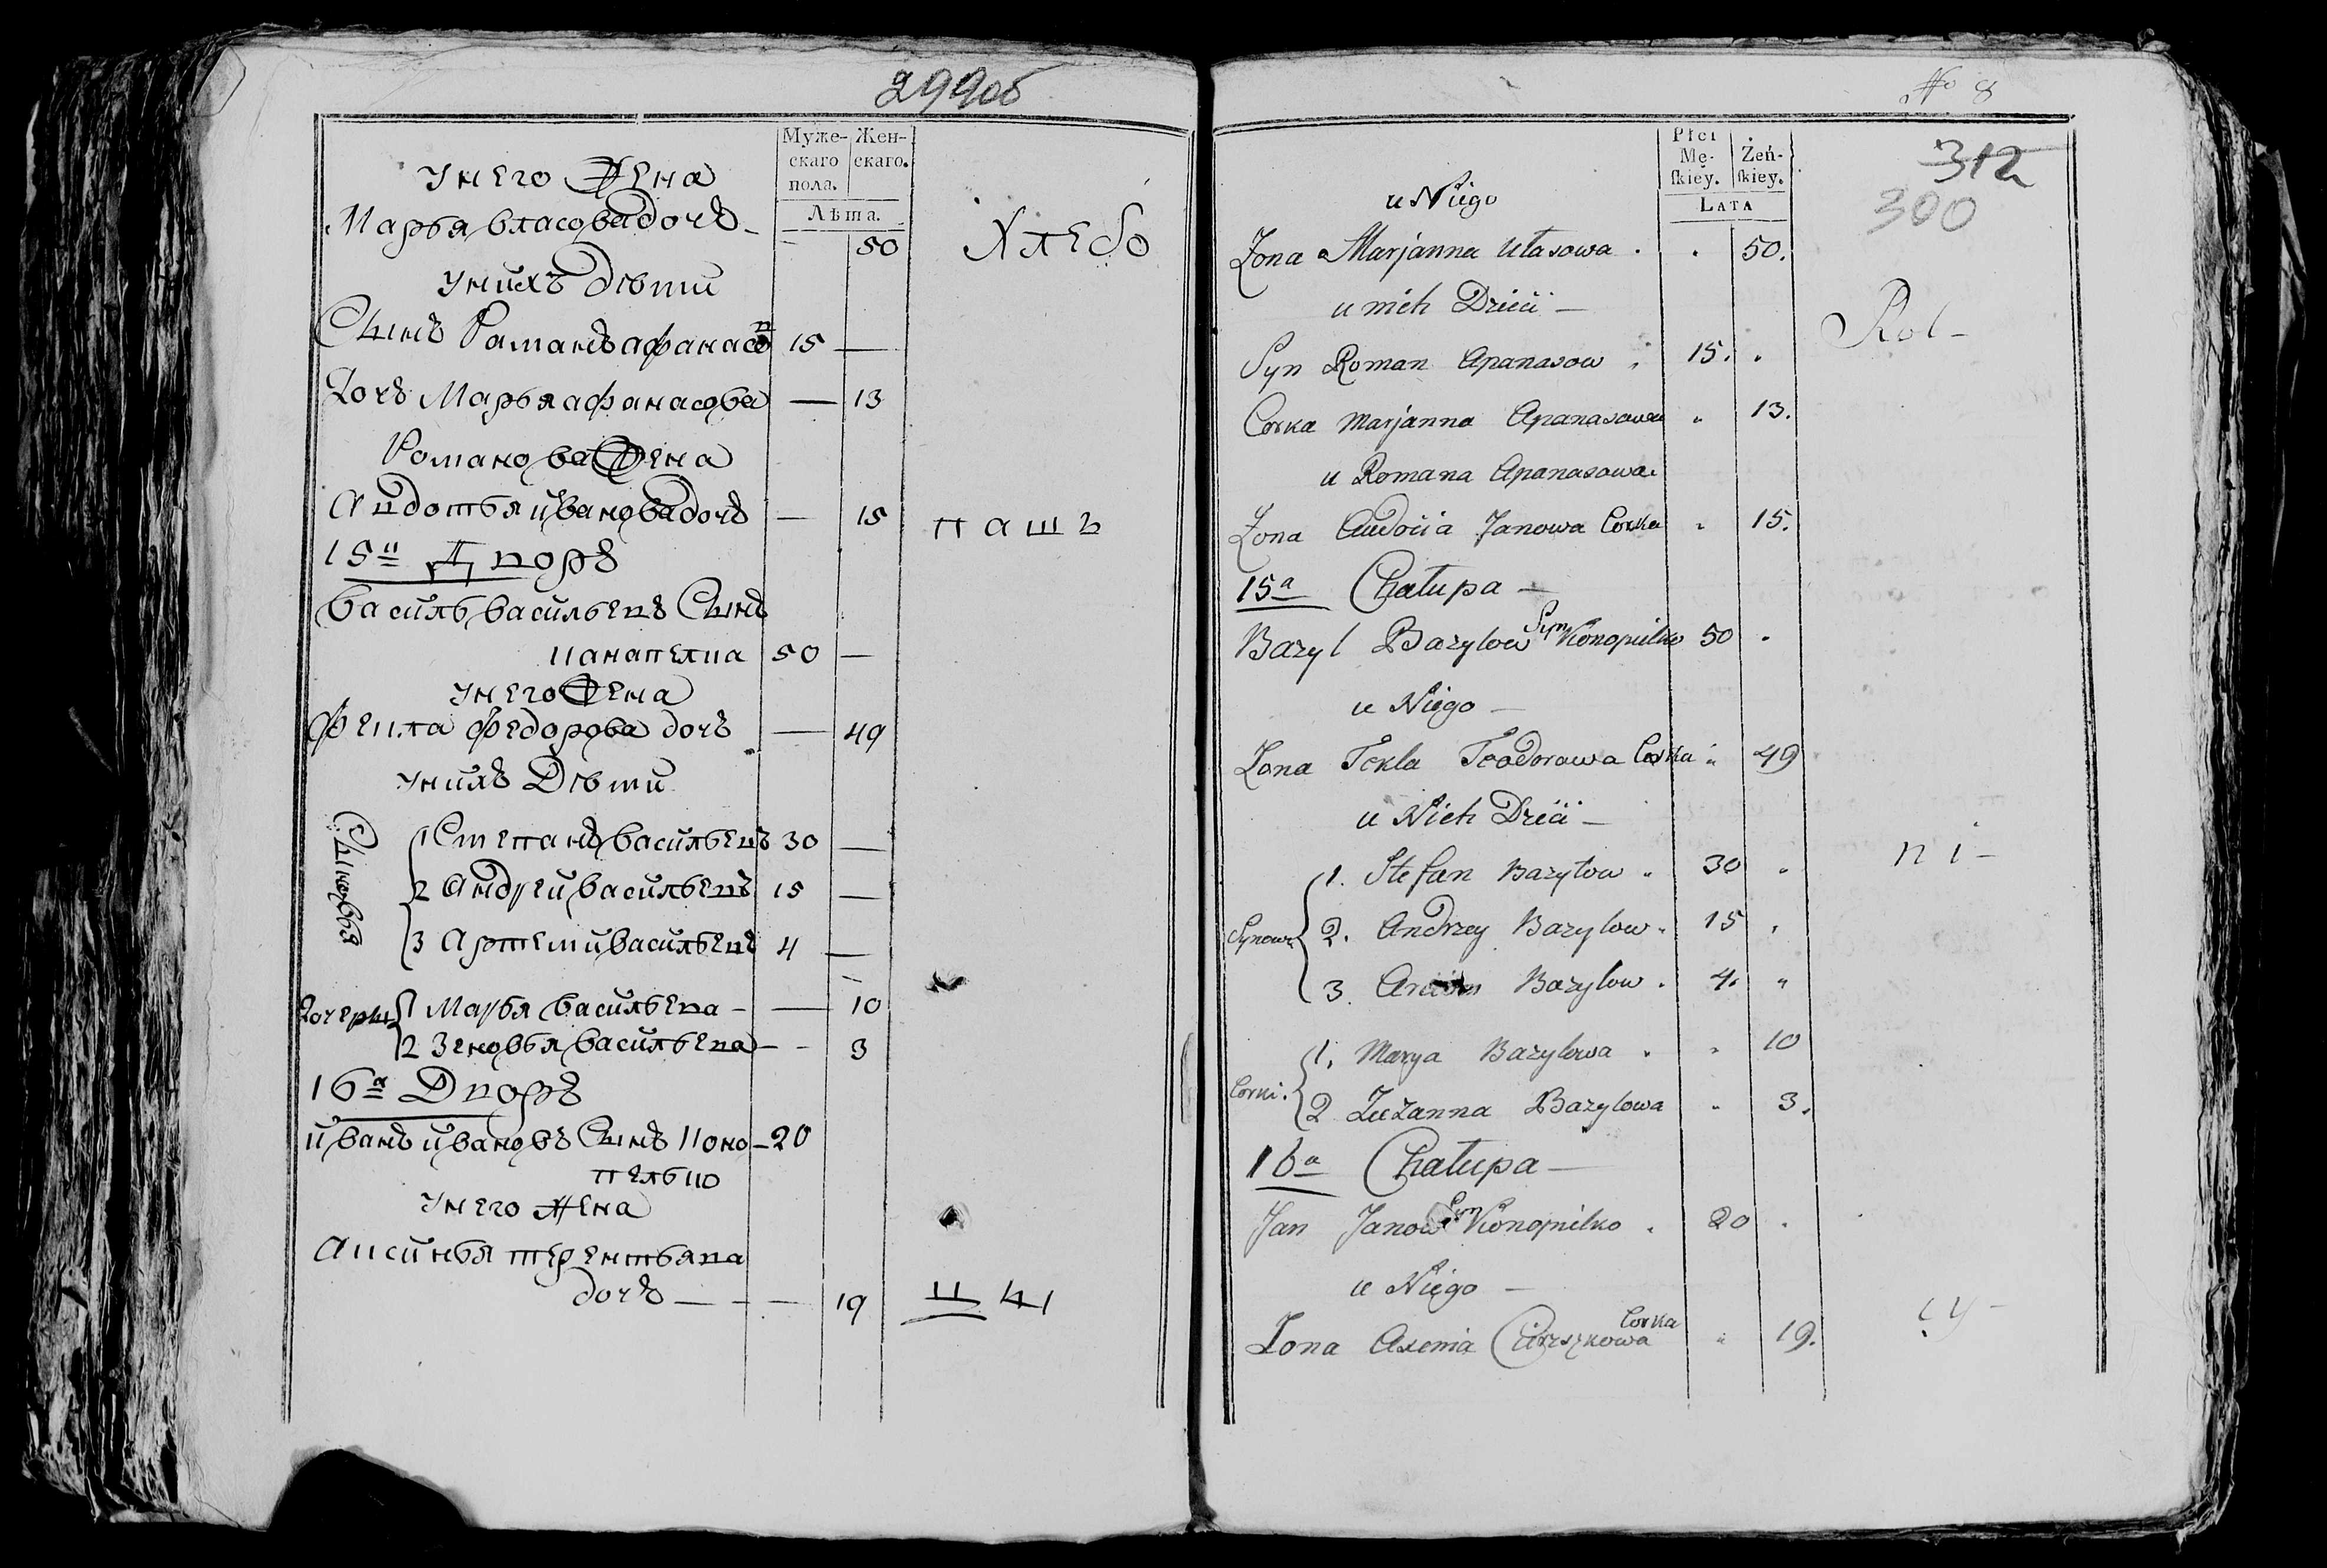 299об
Муже-
скаго
пола.
Жен-
скаго.
Лѣта.
У него жена
Марья власова дочь — 50
Хлебо
У нихъ дѣти
Сынъ Романъ афанасов 15 —
Дочь Марья афанасова — 13
Романова жена
Авдотья иванова дочь — 15
паш ъ
15й Дворъ
василь васильевъ Сынъ
канапелка 50 —
У него жена
Фекла федорова дочь — 49
У нихъ Дѣти
Сыновья
1 Степанъ васильевъ 30 —
2 андрей васильевъ 15 —
3 артеми васильевъ 4 —
Дочери
1 Марья васильева — — 10
2 Зеновья васильева — — 3
16й Дворъ
иванъ ивановъ Сынъ коно — 20
пелько
У него жена
аксинья терентьява
дочь — — — 19
ц ы
№ 8
312
300
Płci
Mę-
ſkiey.
Żeń-
ſkiey.
LATA
u Niego
Zona Marjanna Ułasowa . . 50.
u nich Dzieci —
Rol-
Syn Roman Apanasow . 15. .
Corka Marjanna Apanasowa " 13.
u Romana Apanasowa
Zona Audocia Janowa Corka " 15.
15a Chałupa —
Bazyl Bazylow Syn Konopielko 50 .
u Niego —
Zona Tekla Teodorawa Corka " 49
u Nich Dzieci —
ni-
Synowie
1. Stefan Bazylow " 30 "
2. Andrzey Bazylow " 15 .
3. Bazylow . 4. "
Corki.
1. Marya Bazylowa . " 10
2 Zuzanna Bazylowa " 3.
16a Chałupa —
Jan Janow Syn Konopilko . 20 .
u Niego —
cy-
Zona Axenia Corka " 19.